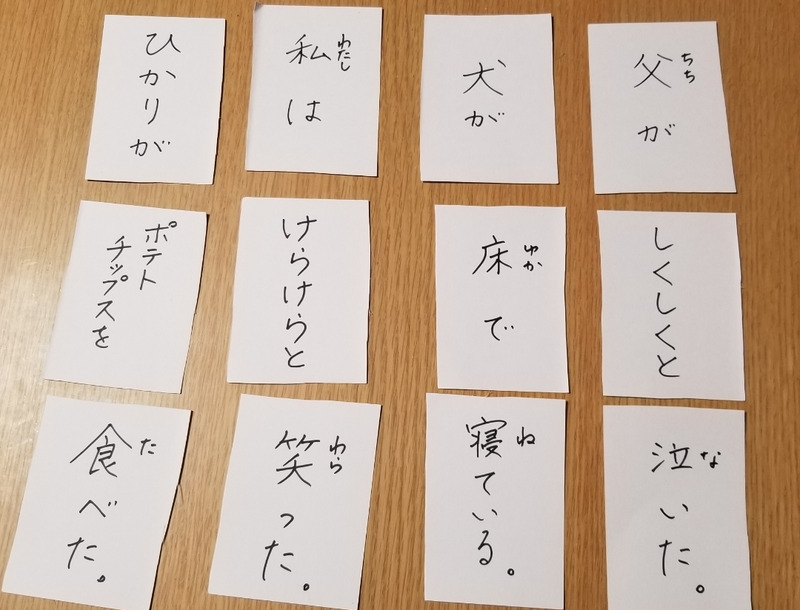 父が
ちち
しくしくと
泣いた。
な
犬が
床で
ゆか
寝ている。
ね
私は
わたし
けらけらと
笑った。
わら
ひかりが
ポテト
チップスを
食べた。
た